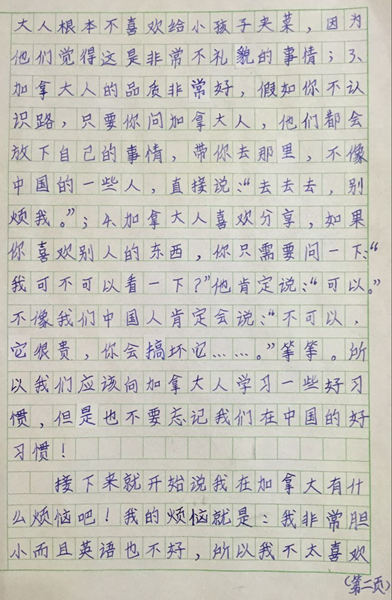 大人根本不喜欢给小孩子夹菜，因为
他们觉得这是非常不礼貌的事情；3、
加拿大人的品质非常好，假如你不认
识路，只要你问加拿大人，他们都会
放下自己的事情，带你去那里，不像
中国的一些人，直接说：“去去去，别
烦我。”；4、加拿大人喜欢分享，如果
你喜欢别人的东西，你只需要问一下：“
我可不可以看一下？”他肯定说：“可以。”
不像我们中国人肯定会说：“不可以，
它很贵，你会搞坏它……。”等等。所
以我们应该向加拿大人学习一些好习
惯，但是也不要忘记我们在中国的好
习惯！
接下来就开始说我在加拿大有什
么烦恼吧！我的烦恼就是：我非常胆
小而且英语也不好，所以我不太喜欢
（第二页）